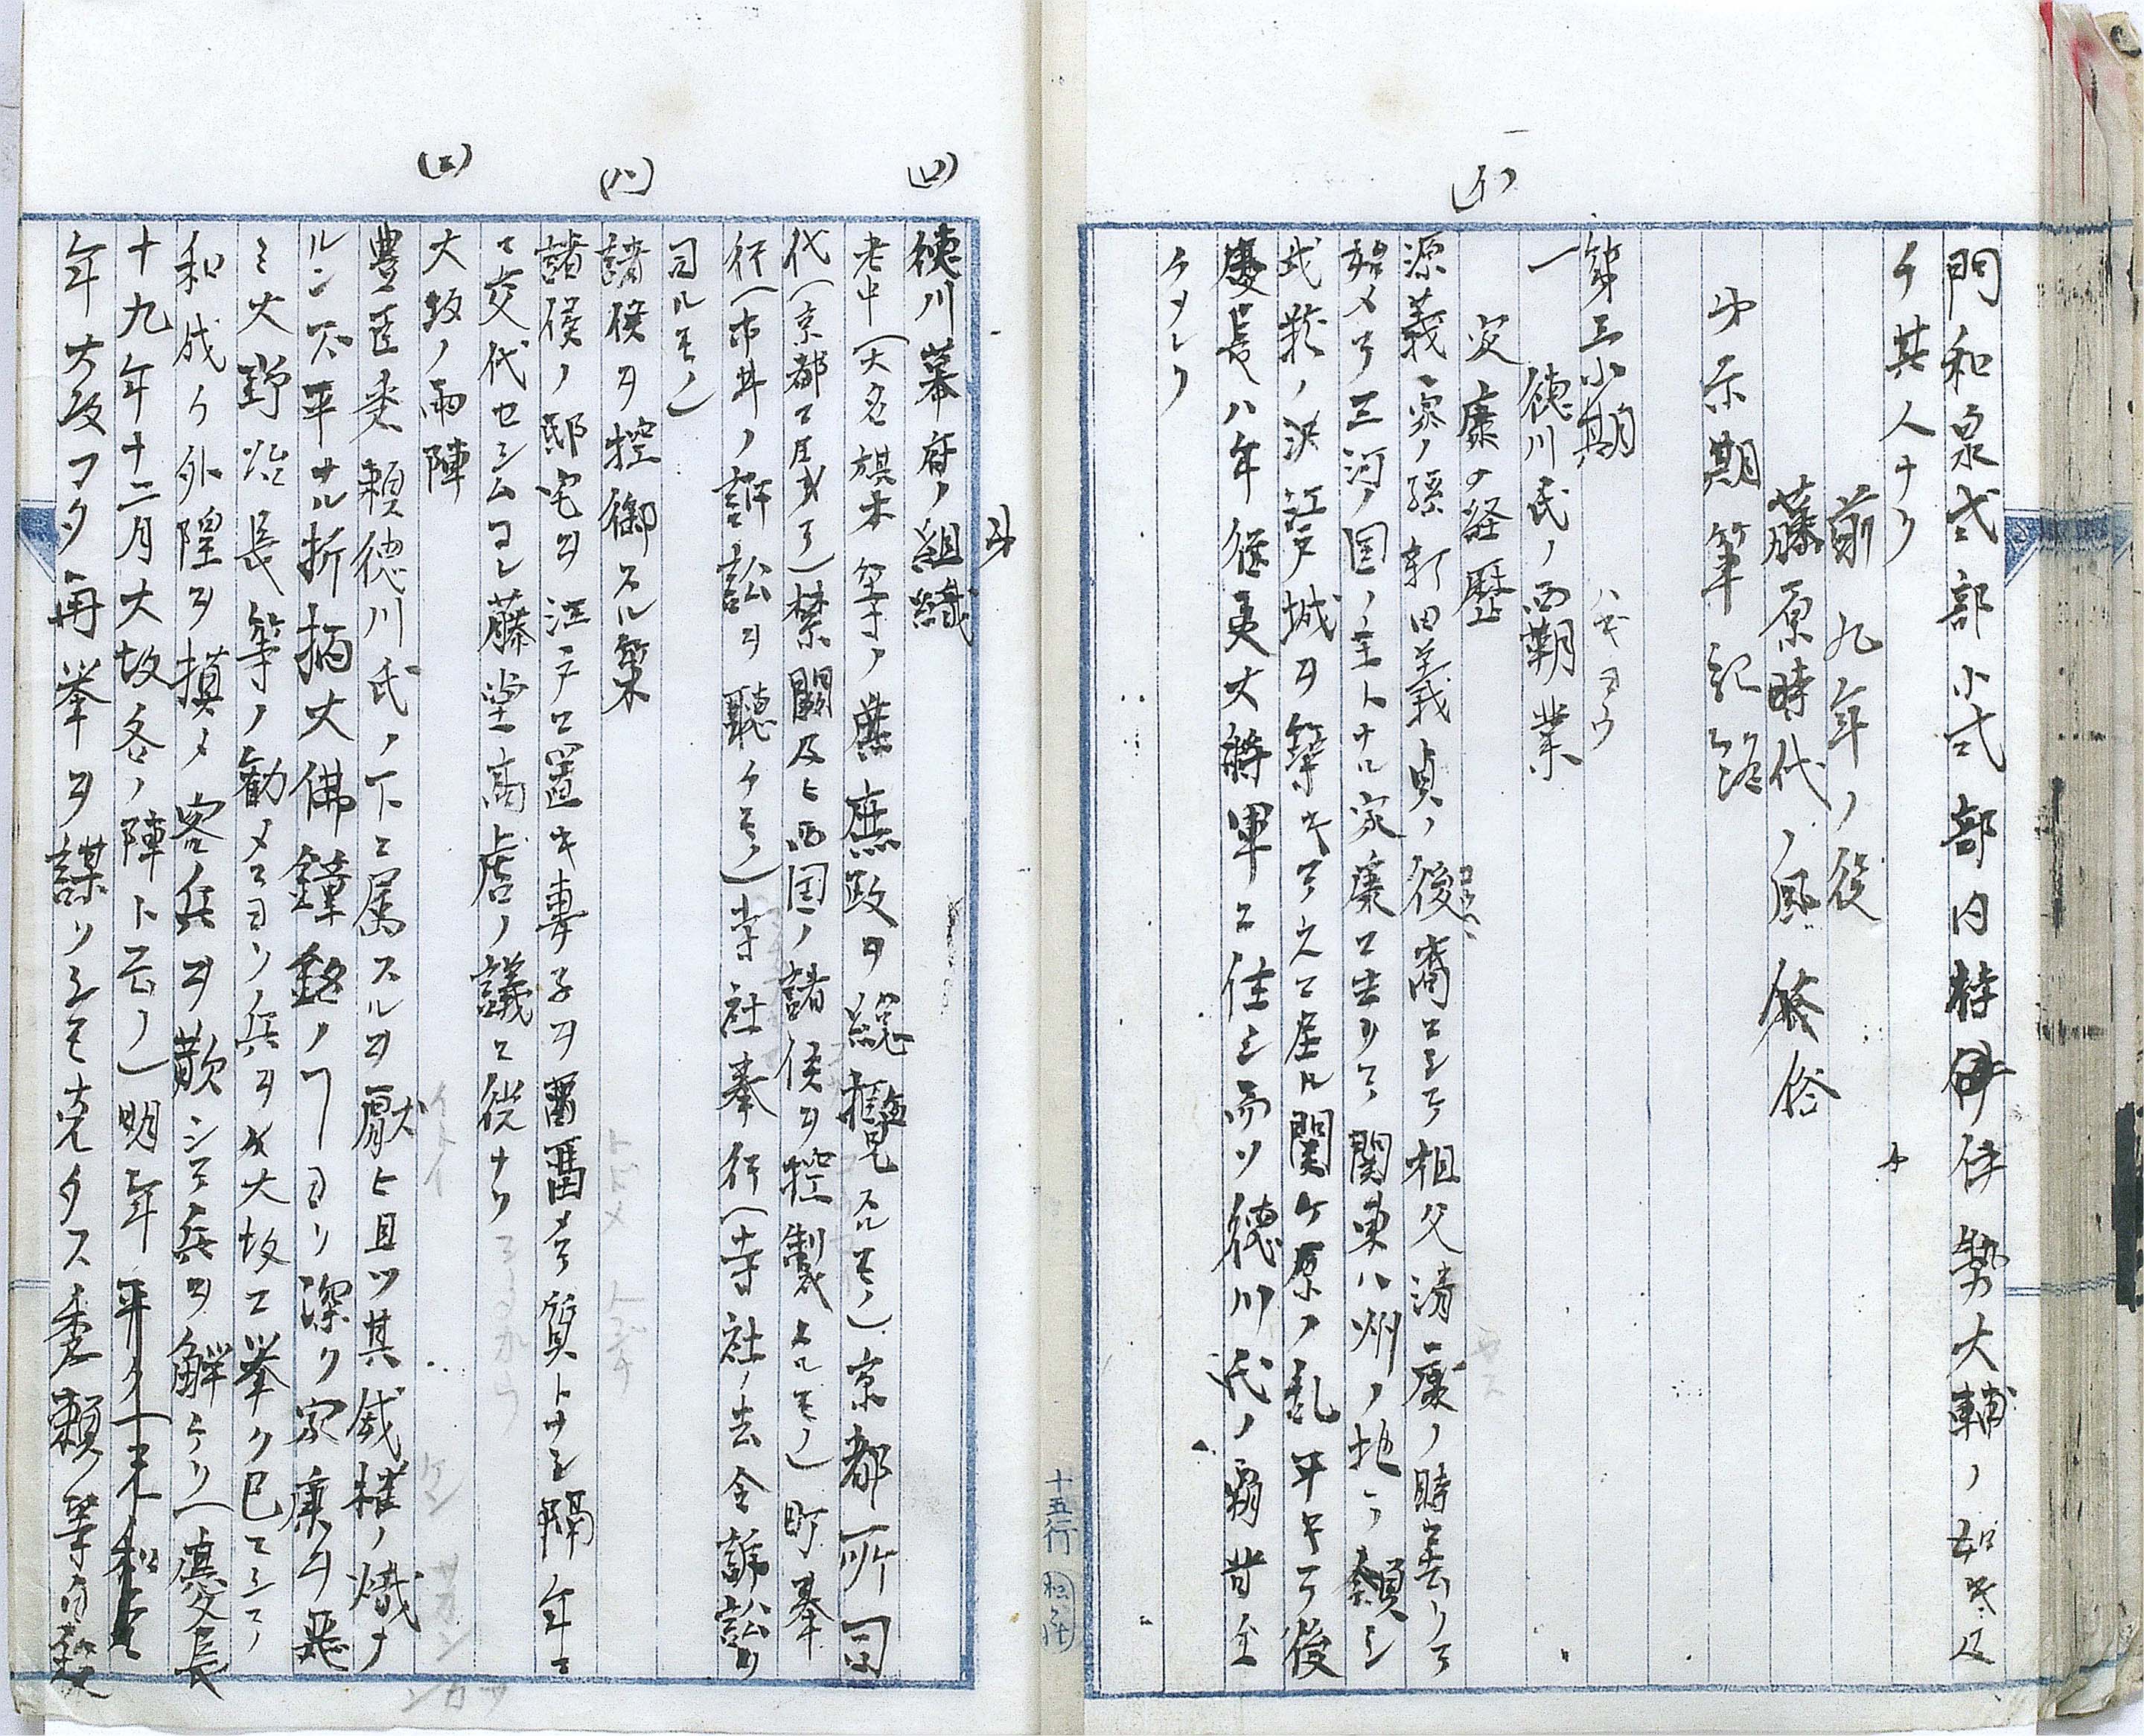 門和泉式部小式部内侍伊勢大輔ノ如キハ
チ其人ナリ
前九年ノ役
藤原時代ノ風俗
第二期筆記
第三小期
ハギョウ
一 徳川氏ノ覇業
(イ)
家康の経歴
源義家ノ孫新田義貞ノ後裔ニシテ祖父清康ノ時
始メテ三河ノ国ノ主トナル家康ニ至リテ関東八州ノ地ヲ領シ
武蔵ノ江戸城ヲ築キテ之ニ居ル関ケ原ノ乱平キテ後
慶長八年征夷大将軍ニ任シ而ソ徳川氏ノ覇昔全
(ロ)
徳川幕府ノ組織
老中(大名旗本等ノ庶政ヲ総攬スルモノ)京都所司
代(京都ニ居リテ禁闕及ヒ西国ノ諸侯ヲ控製スルモノ)町奉
行(市井ノ訴訟ヲ聴クモノ)寺社奉行(寺社ノ法令訴訟ヲ
司ルモノ)
(ハ)
諸侯ヲ控御スル策
諸侯ノ邸宅ヲ江戸ニ置キ妻子ヲ留メテ質トナシ隔年ニ
テ交代セシムコレ藤堂高虎ノ議ニ従ナリ
(ニ)
大坂ノ両陣
豊臣秀頼徳川氏ノ下ニ属スルヲ厭ヒ且ツ其威権ノ熾ナ
ルン不平ナル折柄大佛鐘銘ノヿヨリ深ク家康ヲ悪
ミ大野治長等ノ勧メニヨリ兵ヲ大坂ニ挙ク已ニシテ
和成リ外隍ヲ填メ客兵ヲ散シテ兵ヲ解ケリ(慶長
十九年十二月大坂冬ノ陣ト云ノ)明年
年大坂マタ再挙ヲ謀リシモ克タス秀頼等自殺
十五行